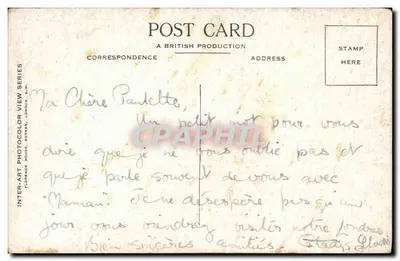 POST CARD
A BRITISH PRODUCTION
CORRESPONDENCE
ADDRESS
STAMP
HERE
INTER-ART PHOTOCOLOR VIEW SERIES
FLORENCE HOUSE, BARNES, LONDON, S.W.
CPARAMA
Ma Chère Paulette,
Un petit mot pour vous
dire que je ne vous oublie pas et
que je parle souvent de vous avec
"Maman". Je ne désespère pas qu'un
jour vous viendrez visiter notre Londres
Bien sincères amitiés.